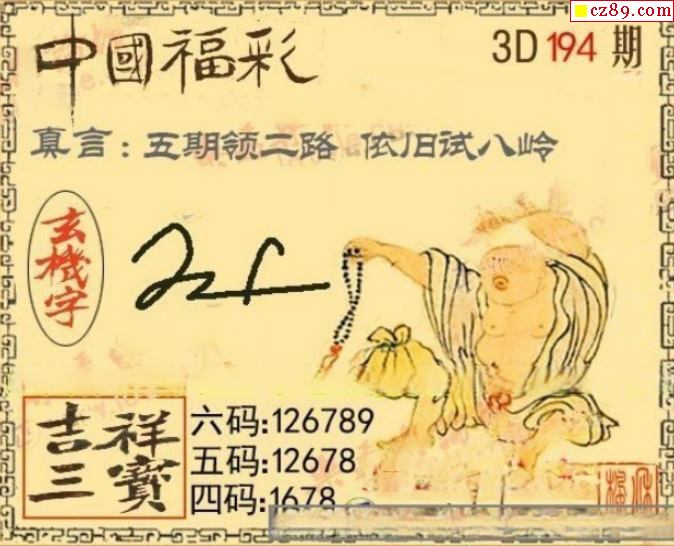 cz89.com
中國福彩
3D 194 期
真言：五期领二路 依旧试八岭
玄機字
吉祥三寶
六码:126789
五码:12678
四码:1678